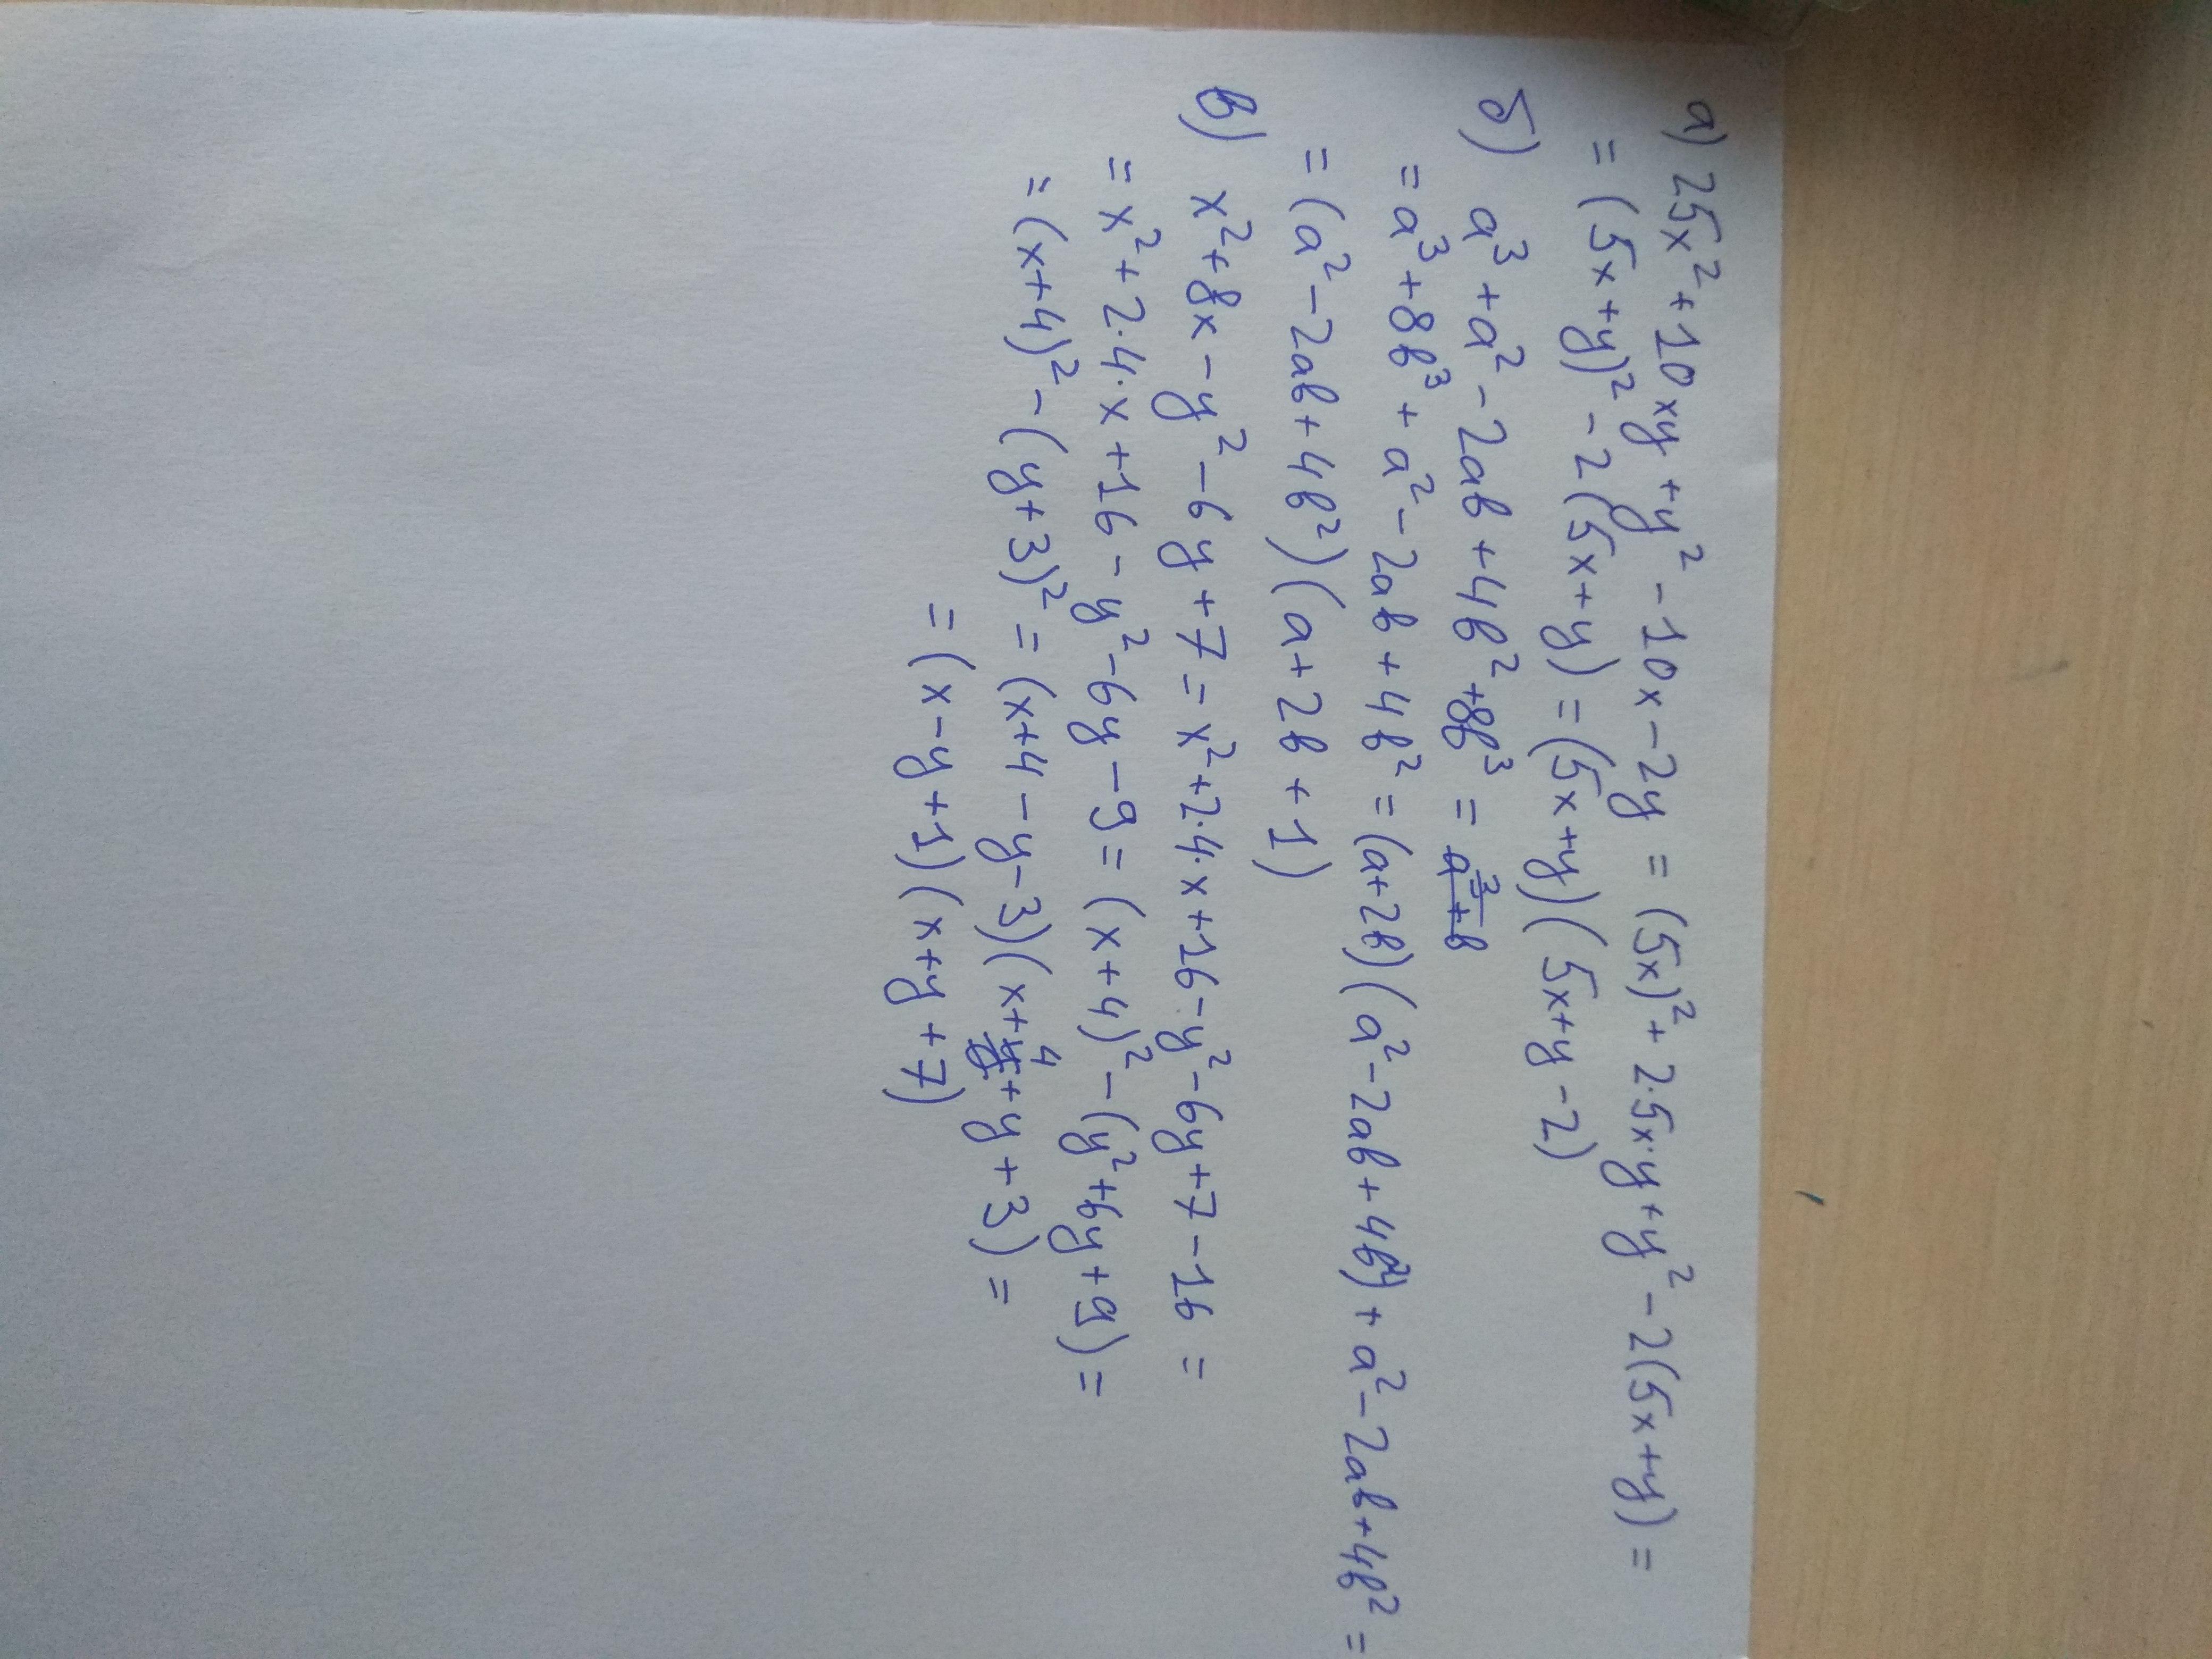 а) 25x² + 10xy + y² - 10x - 2y = (5x)² + 2·5x·y + y² - 2(5x+y) =
= (5x+y)² - 2(5x+y) = (5x+y)(5x+y-2)
б) a³ + a² - 2ab + 4b² + 8b³ =
= a³ + 8b³ + a² - 2ab + 4b² = (a+2b)(a² - 2ab + 4b²) + a² - 2ab + 4b² =
= (a² - 2ab + 4b²)(a + 2b + 1)
в) x² + 8x - y² - 6y + 7 = x² + 2·4·x + 16 - y² - 6y + 7 - 16 =
= x² + 2·4·x + 16 - y² - 6y - 9 = (x+4)² - (y² + 6y + 9) =
= (x+4)² - (y+3)² = (x+4-y-3)(x+4+y+3) =
= (x-y+1)(x+y+7)